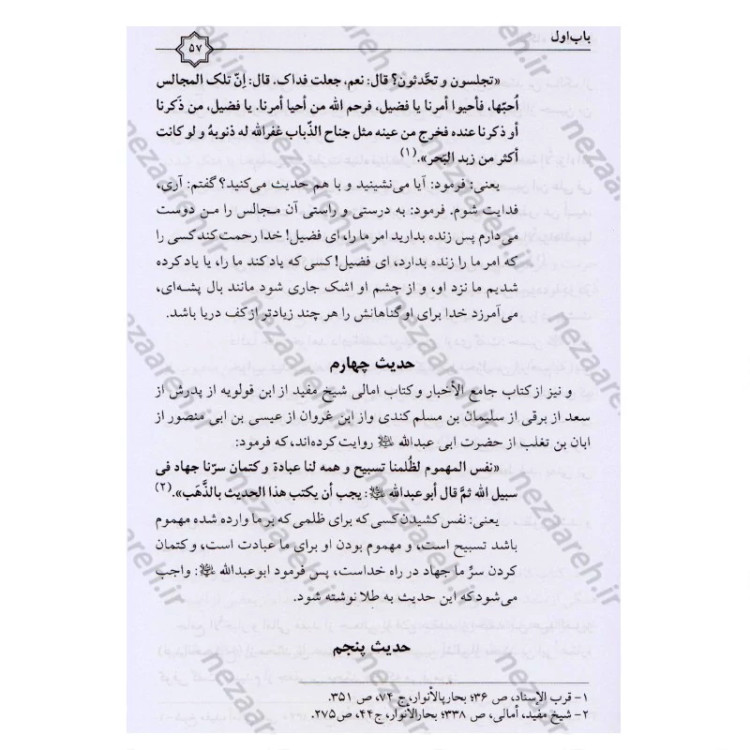 باب اول
۵۷
«تجلسون و تحَّدثون؟ قال: نعم، جعلت فداک. قال: اِنّ تلک المجالس
اُحبّها، فأحیوا أمرنا یا فضیل، فرحم الله من أحیا أمرنا. یا فضیل، من ذَکرنا
أو ذکرنا عنده فخرج من عینه مثل جناح الذّباب غفرالله له ذنوبهُ و لو کانت
أکثر من زبد البَحر».(۱)
یعنی: فرمود: آیا می‌نشینید و با هم حدیث می‌کنید؟ گفتم: آری،
فدایت شوم. فرمود: به درستی و راستی آن مجالس را من دوست
می دارم پس زنده بدارید امر ما را، ای فضیل! خدا رحمت کند کسی را
که امر ما را زنده بدارد، ای فضیل! کسی که یاد کند ما را، یا یاد کرده
شدیم ما نزد او، و از چشم او اشک جاری شود مانند بال پشه‌ای،
می‌آمرزد خدا برای او گناهانش را هر چند زیادتر از کف دریا باشد.
حدیث چهارم
و نیز از کتاب جامع الأخبار و کتاب امالی شیخ مفید از ابن قولویه از پدرش از
سعد از برقی از سلیمان بن مسلم کندی واز ابن غروان از عیسی بن ابی منصور از
ابان بن تغلب از حضرت ابی عبدالله علیه السلام روایت کرده‌اند، که فرمود:
«نفس المهموم لظُلمنا تسبیح و همه لنا عبادة و کتمان سرّنا جهاد فی
سبیل الله ثمَّ قال أبوعبدالله علیه السلام: یجب أن یکتب هذا الحدیث بالذَّهَب».(۲)
یعنی: نفس کشیدن کسی که برای ظلمی که بر ما وارده شده مهموم
باشد تسبیح است، و مهموم بودن او برای ما عبادت است، و کتمان
کردن سرِّ ما جهاد در راه خداست، پس فرمود ابوعبدالله علیه السلام: واجب
می‌شود که این حدیث به طلا نوشته شود.
حدیث پنجم
۱- قرب الإسناد، ص ۳۶؛ بحارالأنوار، ج ۷۴، ص ۳۵۱.
۲- شیخ مفید، أمالی، ص ۳۳۸؛ بحارالأنوار، ج۴۴، ص۲۷۵.
nezaareh.ir